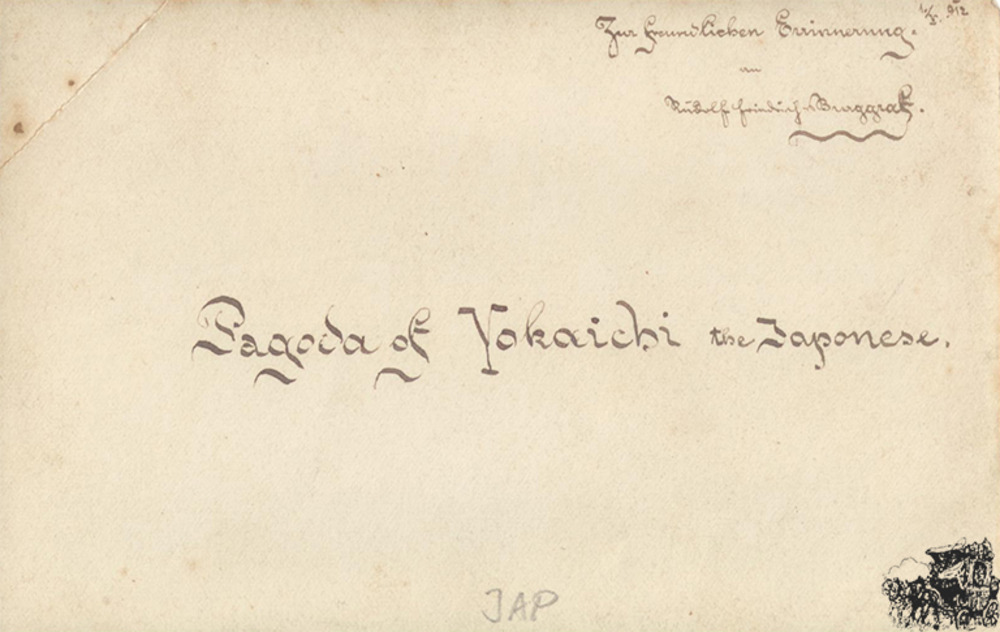 Zur freundlichen Errinnerung.
an
Rudolf Friedrich Burggraf.
Pagoda of Yokaichi the Japonese.
JAP